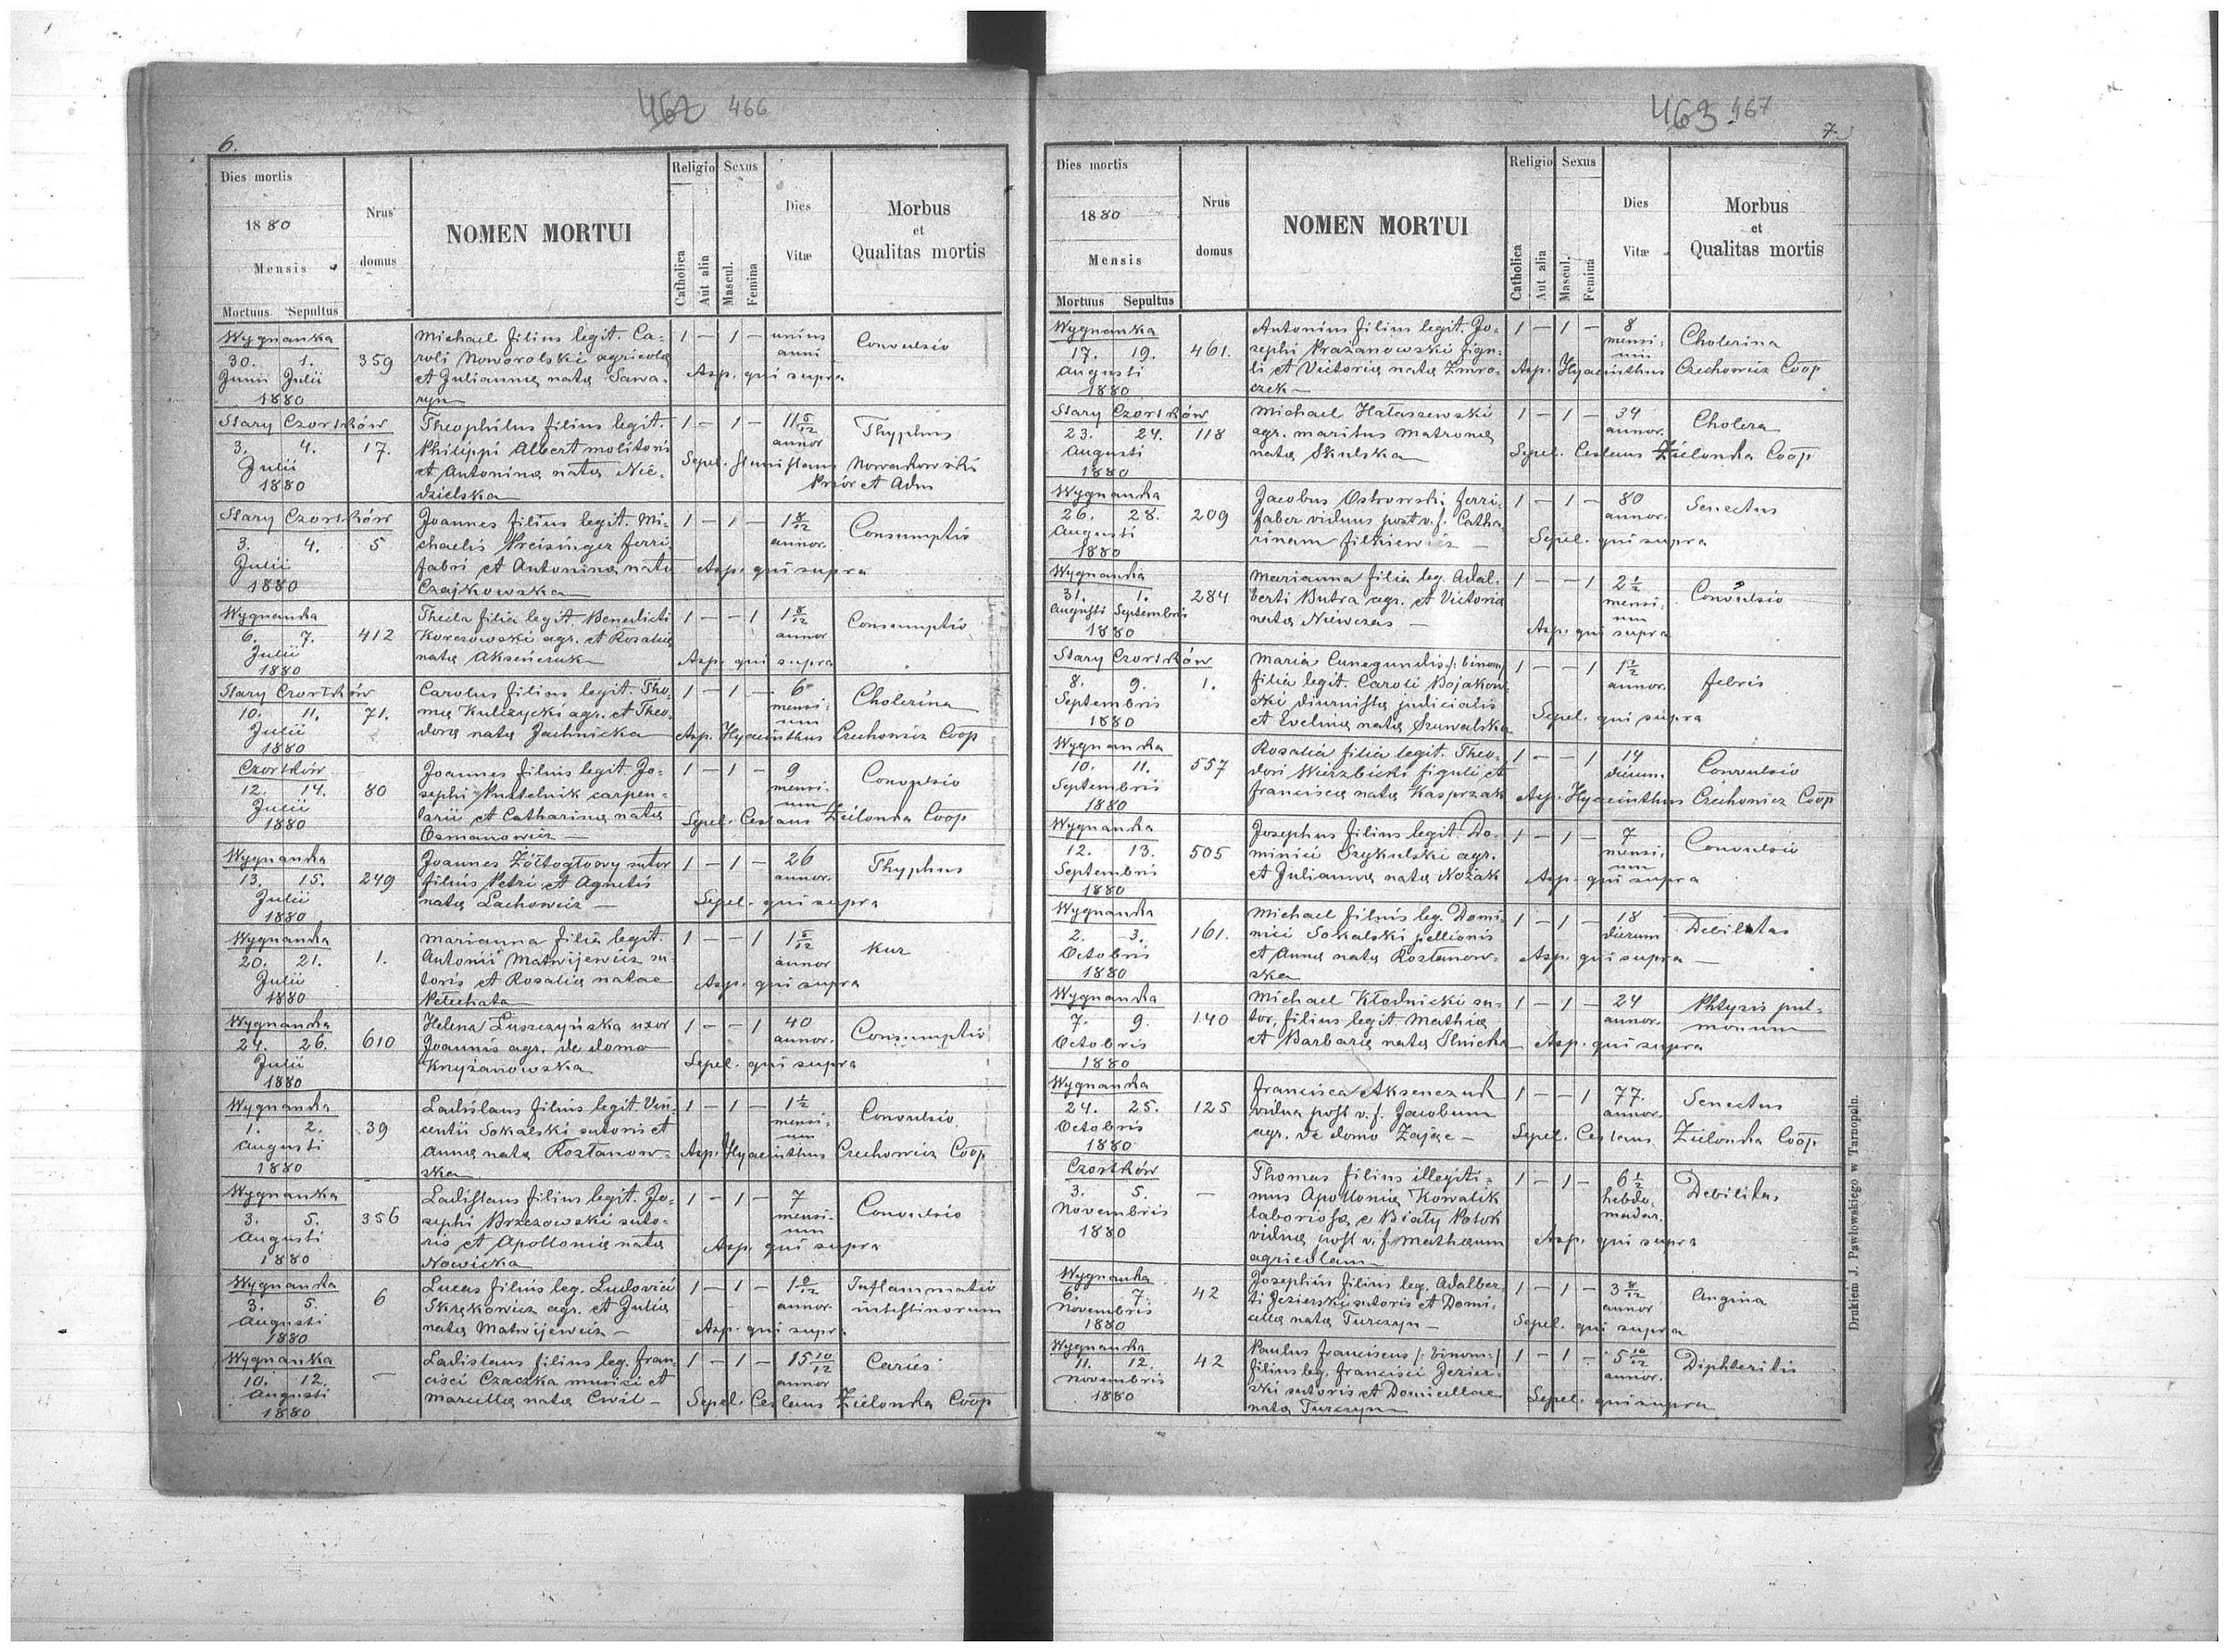 462 466
6.
Dies mortis
1880
Mensis
Mortuus Sepultus
Nrus domus
NOMEN MORTUI
Religio
Catholica
Aut alia
Sexus
Mascul.
Femina
Dies Vitæ
Morbus
et
Qualitas mortis
Wygnanka
30. 1.
Junii Julii
1880
359
Michael filius legit. Ca-
roli Noworolski agricola
et Juliannæ nata Sawa-
ryn
1 — 1 — unius
anni
Convulsio
Asp. qui supra
Stary Czortków
3. 4.
Julii
1880
17.
Theophilus filius legit.
Philippi Albert molitoris
et Antonina nata Nie-
dzielska
1 — 1 — 11 5/12
annor
Thyphus
Sepel. Stanislaus Nowakowski
Prior et Adm
Stary Czortków
3. 4.
Julii
1880
5
Joannes filius legit. Mi-
chaelis Preisinger ferri-
fabri et Antonina nata
Czajkowska
1 — 1 — 1 8/12
annor.
Consumptio
Asp. qui supra
Wygnanka
6. 7.
Julii
1880
412
Thecla filia legit Benedicti
Korczowski agr. et Rosaliæ
nata Aksenczuk
1 — — 1 1 8/12
annor
Consumptio
Asp. qui supra
Stary Czortków
10. 11.
Julii
1880
71.
Carolus filius legit. Tho-
mæ Kulczycki agr. et Theo-
dora nata Jachnicka
1 — 1 — 6
mensi-
um
Cholerina
Asp. Hyacinthus Czechowicz Coop
Czortków
12. 14.
Julii
1880
80
Joannes filius legit. Jo-
sephi Pustelnik carpen-
tarii et Catharina nata
Osmanowicz —
1 — 1 — 9
mensi-
um
Convulsio
Sepel. Ceslaus Zielonka Coop
Wygnanka
13. 15.
Julii
1880
249
Joannes Żółtogłowy sutor
filius Petri et Agnetis
nata Lachowicz —
1 — 1 — 26
annor.
Thyphus
Sepel. qui supra
Wygnanka
20. 21.
Julii
1880
1.
Marianna filia legit.
Antonii Matwijewicz su-
toris et Rosalia natae
Petechata
1 — — 1 1 5/12
annor
Kur
Asp. qui supra
Wygnanka
24. 26.
Julii
1880
610
Helena Luszczyńska uxor
Joannis agr. de domo
Knyzanowska
1 — — 1 40
annor.
Consumptio
Sepel. qui supra
Wygnanka
1. 2.
Augusti
1880
39
Ladislaus filius legit. Vin-
centii Sokalski sutoris et
Anna nata Rozłanow-
ska
1 — 1 — 1 1/2
mensi-
um
Convulsio
Asp. Hyacinthus Czechowicz Coop
Wygnanka
3. 5.
Augusti
1880
356
Ladislaus filius legit. Jo-
sephi Brzezowski suto-
ris et Apolloniæ nata
Nowicka
1 — 1 — 7
mensi-
um
Convulsio
Asp. qui supra
Wygnanka
3. 5.
Augusti
1880
6
Lucas filius leg. Ludovici
Skrękowicz agr. et Julia
nata Matwijewicz —
1 — 1 —
annor.
Inflammatio
intestinorum
Asp. qui supra
Wygnanka
10. 12.
Augusti
1880
—
Ladislaus filius leg. Fran-
cisci Czaczka musici et
Marcella nata Cwil —
1 — 1 — 15 10/12
annor
Caries
Sepel. Ceslaus Zielonka Coop
463. 467
7.
Dies mortis
1880
Mensis
Mortuus Sepultus
Nrus domus
NOMEN MORTUI
Religio
Catholica
Aut alia
Sexus
Mascul.
Femina
Dies Vitæ
Morbus
et
Qualitas mortis
Wygnanka
17. 19.
Augusti
1880
461.
Antonius filius legit. Jo-
sephi Prażanowski figu-
li et Victoria nata Zmro-
czek —
1 — 1 — 8
mensi-
um
Cholerina
Asp. Hyacinthus Czechowicz Coop
Stary Czortków
23. 24.
Augusti
1880
118
Michael Hałaszewski
agr. maritus Matronæ
nata Skulska
1 — 1 — 34
annor.
Cholera
Sepel. Ceslaus Zielonka Coop
Wygnanka
26. 28.
Augusti
1880
209
Jacobus Ostrowski ferri-
faber viduus post v. f. Catha-
rinam Filkiewicz —
1 — 1 — 80
annor.
Senectus
Sepel. qui supra
Wygnanka
31. 1.
Augusti Septembris
1880
284
Marianna filia leg. Adal-
berti Butra agr. et Victoria
nata Niewczas —
1 — — 1 2 1/2
mensi-
um
Convulsio
Asp. qui supra
Stary Czortków
8. 9.
Septembris
1880
1.
Maria Cunegundis /: binom
filia legit. Caroli Bojakow-
ski diurnista judicialis
et Evelina nata Szuwalska
1 — — 1
annor.
Febris
Sepel. qui supra
Wygnanka
10. 11.
Septembris
1880
557
Rosalia filia legit. Theo-
dori Wierzbicki figuli et
Francisca nata Kasprzak
1 — — 1 14
dierum.
Convulsio
Asp. Hyacinthus Czechowicz Coop
Wygnanka
12. 13.
Septembris
1880
505
Josephus filius legit. Do-
minici Szykulski agr.
et Julianna nata Nożak
1 — 1 — 7
mensi-
um
Convulsio
Asp. qui supra
Wygnanka
2. 3.
Octobris
1880
161.
Michael filius leg. Domi-
nici Sokalski pellionis
et Anna nata Rozłanow-
ska
1 — 1 — 18
dierum
Debilitas
Asp. qui supra —
Wygnanka
7. 9.
Octobris
1880
140
Michael Kłodnicki su-
tor, filius legit Mathiæ
et Barbara nata Ilnicka
1 — 1 — 24
annor.
Phtysis pul-
monum
Asp. qui supra
Wygnanka
24. 25.
Octobris
1880
125
Francisca Aksenczuk
vidua post v. f. Jacobum
agr. de domo Zając —
1 — — 1 77.
annor.
Senectus
Sepel. Ceslaus Zielonka Coop
Czortków
3. 5.
Novembris
1880
—
Thomas filius illegiti-
mus Apollonia Kowalik
laboriosa e Biały Potok
vidua post v. f. Mathæum
agricolam
1 — 1 — 6 1/2
hebdo-
madar.
Debilitas
Asp. qui supra
Wygnanka
6. 7.
Novembris
1880
42
Josephus filius leg. Adalber-
ti Jezierski sutoris et Domi-
cilla nata Turczyn —
1 — 1 — 3 8/12
annor
Angina
Sepel. qui supra
Wygnanka
11. 12.
Novembris
1880
42
Paulus Franciscus /: binom :/
filius leg. Francisci Jezier-
ski sutoris et Domicellae
nata Turczyn
1 — 1 — 5 10/12
annor.
Diphteritis
Sepel. qui supra
Drukiem J. Pawłowskiego w Tarnopolu.